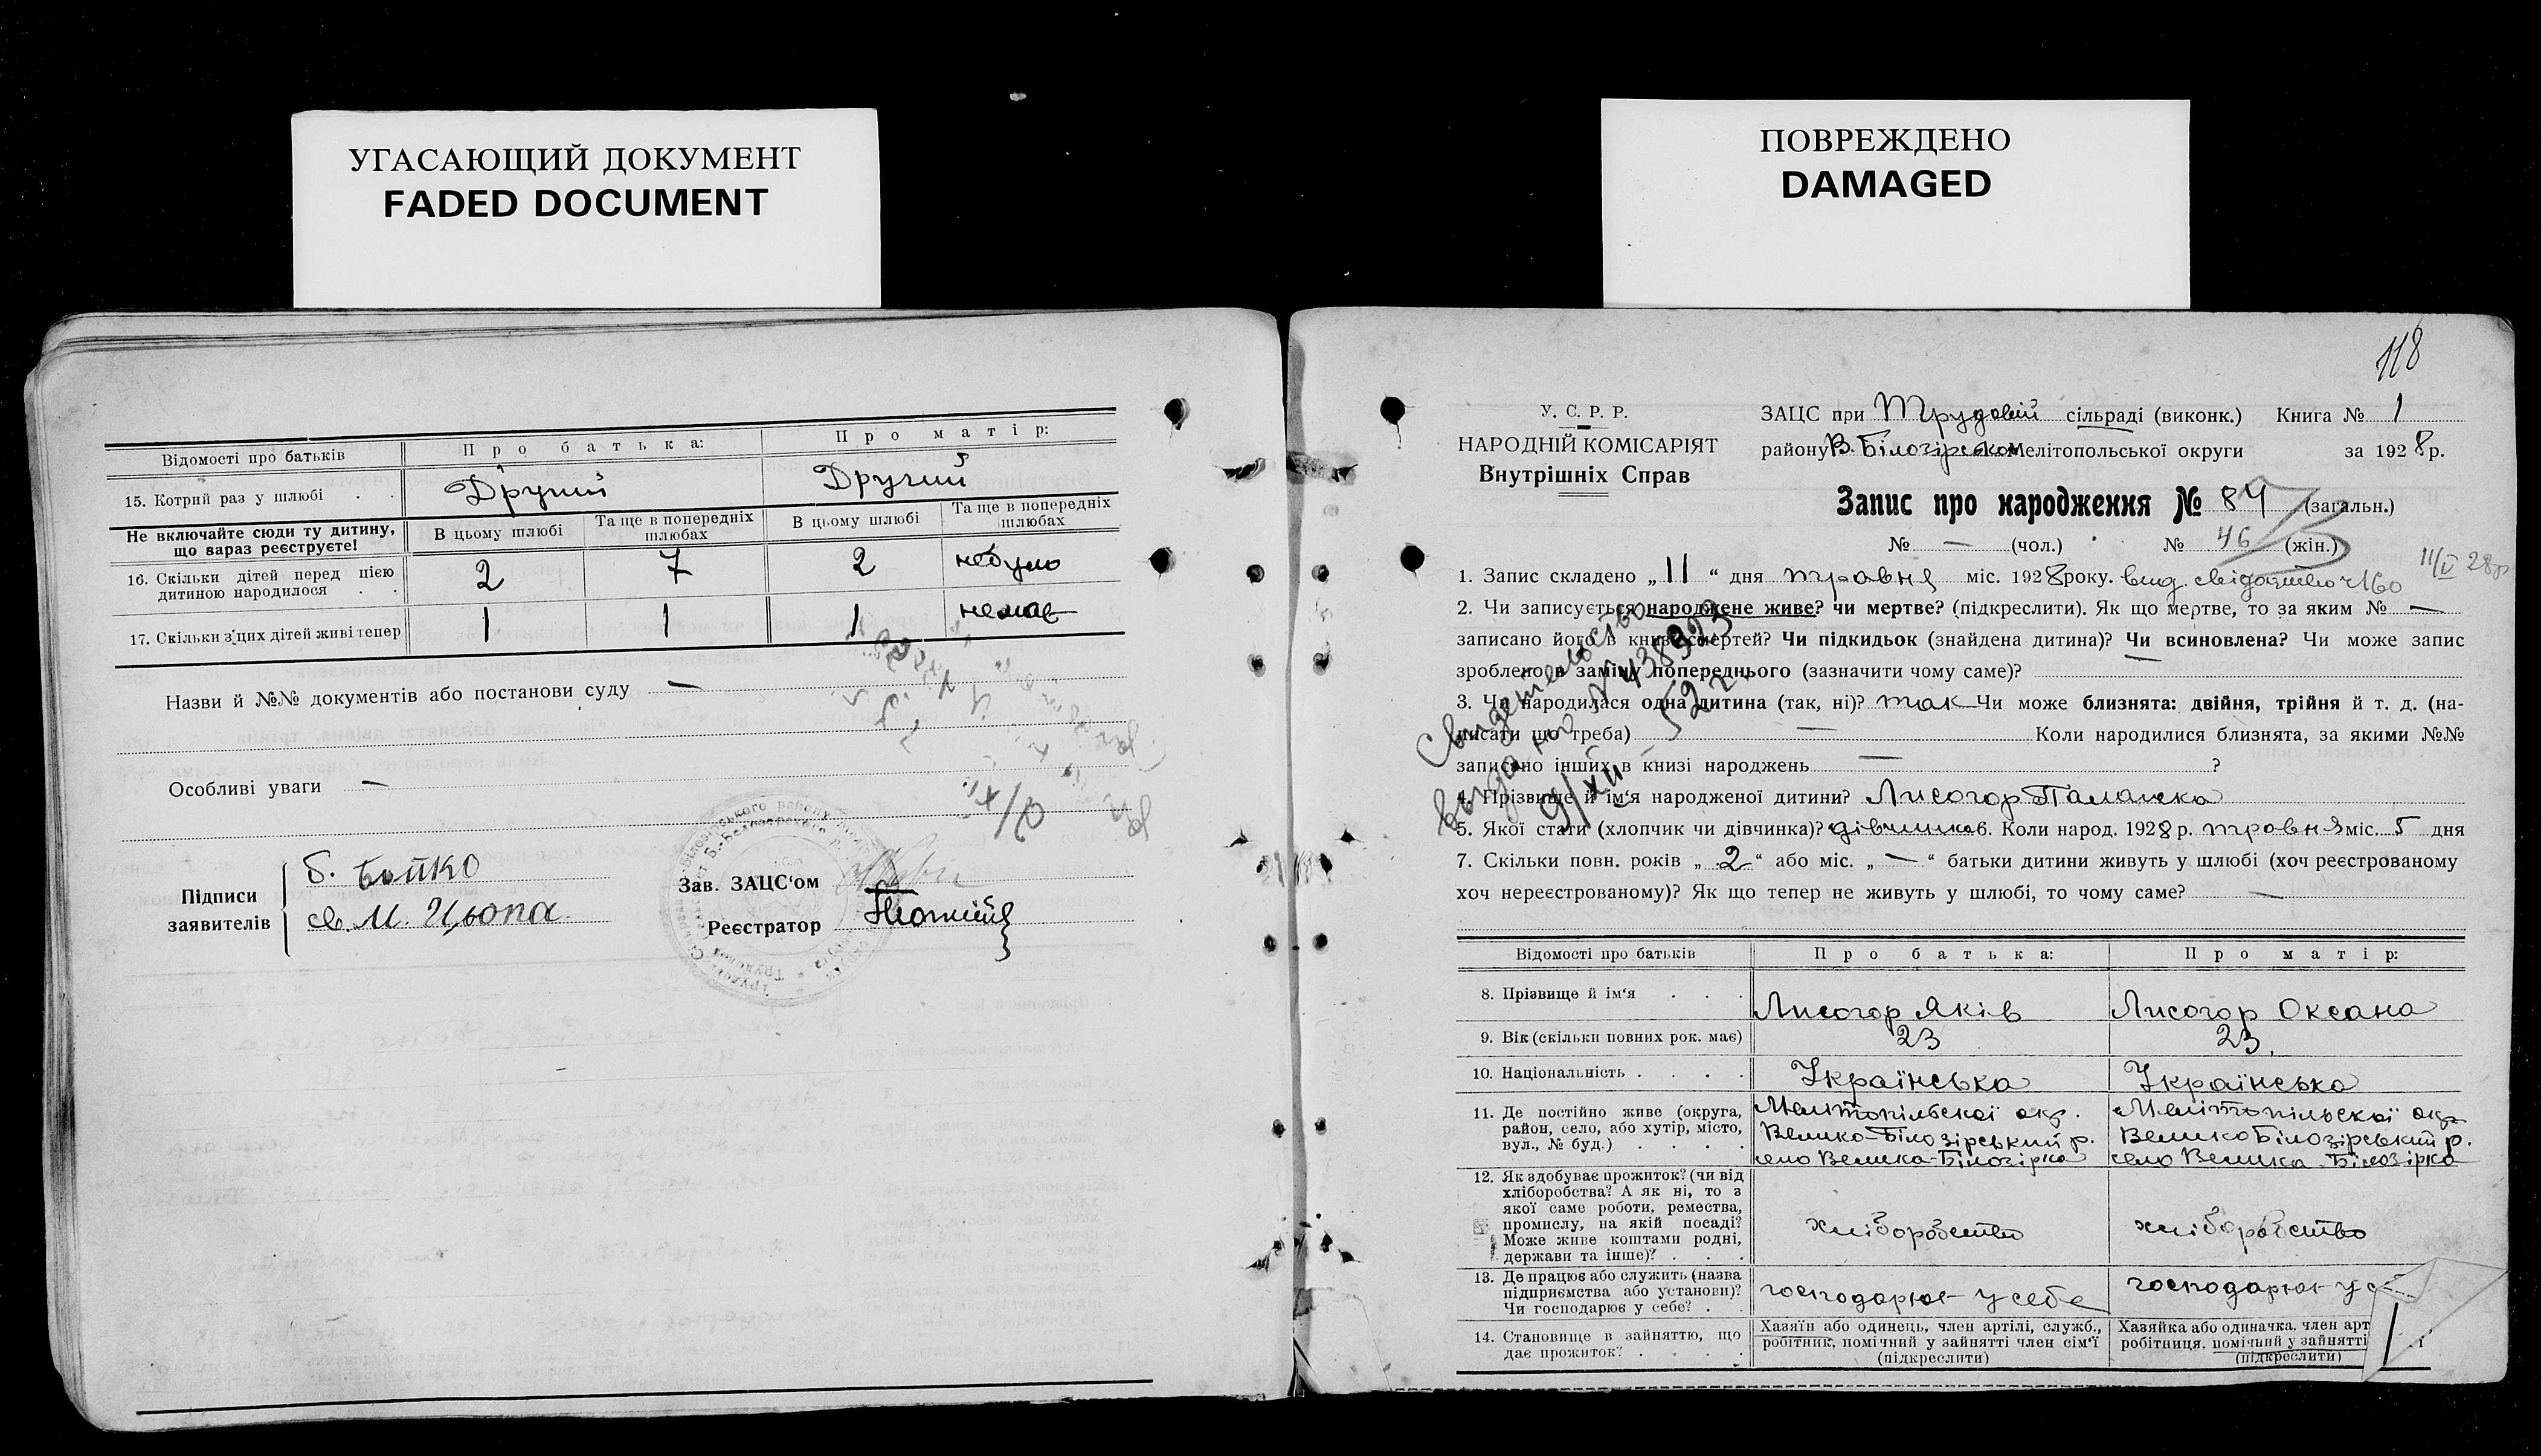 УГАСАЮЩИЙ ДОКУМЕНТ
FADED DOCUMENT
ПОВРЕЖДЕНО
DAMAGED
Відомості про батьків
Про батька:
Про матір:
15. Котрий раз у шлюбі . .
Другий
Другий
Не включайте сюди ту дитину,
що вараз реєструєте!
В цьому шлюбі
Та ще в попередніх
шлюбах
В цьому шлюбі
Та ще в попередніх
шлюбах
16. Скільки дітей перед цією
дитиною народилося . .
2
7
2
небуло
17. Скільки з'цих дітей живі тепер
1
1
1
немає
Назви й №№ документів або постанови суду —
Особливі уваги —
Підписи
заявителів
б. Бойко
св. М. Цьопа
Зав. ЗАЦС'ом
Реєстратор
118
У. С. Р. Р.
НАРОДНІЙ КОМІСАРІЯТ
Внутрішніх Справ
ЗАЦС при Трудовій сільраді (виконк.) Книга № 1
району В. Білозірськом Мелітопольської округи за 1928 р.
Запис про народження № 84 (загальн.)
№ — (чол.) № 46 (жін.)
1. Запис складено „11“ дня травня міс. 1928 року. вид. свідоцтво ч 160
11/V 28р
2. Чи записується народжене живе? чи мертве? (підкреслити). Як що мертве, то за яким № —
записано його в книзі смертей? Чи підкидьок (знайдена дитина)? Чи всиновлена? Чи може запис
зроблено в заміну попереднього (зазначити чому саме)? —
3. Чи народилася одна дитина (так, ні)? так Чи може близнята: двійня, трійня й т. д. (на-
писати що треба) — Коли народилися близнята, за якими №№
записано інших в книзі народжень — ?
4. Прізвище й ім'я народженої дитини? Лисогор Палажка
5. Якої стати (хлопчик чи дівчинка)? дівчинка 6. Коли народ. 1928 р. травня міс. 5 дня
7. Скільки повн. років „2“ або міс. „—“ батьки дитини живуть у шлюбі (хоч реєстрованому
хоч нереєстрованому)? Як що тепер не живуть у шлюбі, то чому саме? —
Свидетельство
выдано № 438393
9/XII - 52 г.
Відомості про батьків
Про батька:
Про матір:
8. Прізвище й ім'я . . .
Лисогор Яків
Лисогор Оксана
9. Вік (скільки повних рок. має)
23
23.
10. Національність . . . .
Українська
Українська
11. Де постійно живе (округа,
район, село, або хутір, місто,
вул., № буд.) . . . .
Мелітопільскої окр.
Велико-Білозірський р.
село Велика-Білозірка
Мелітопільскої окр
Велико Білозірський р.
село Велика Білозірка
12. Як здобуває прожиток? (чи від
хліборобства? А як ні, то з
якої саме роботи, ремества,
промислу, на якій посаді?
Може живе коштами родні,
держави та інше)? . . .
хліборобство
хліборобство
13. Де працює або служить (назва
підприємства або установи)?
Чи господарює у себе? . .
господарює у себе
господарює у
14. Становище в зайняттю, що
дає прожиток? . . . .
Хазяїн або одинець, член артілі, служб.,
робітник, помічний у зайнятті член сім'ї
(підкреслити)
Хазяйка або одиначка, член арт
робітниця, помічний у зайнятті
(підкреслити)